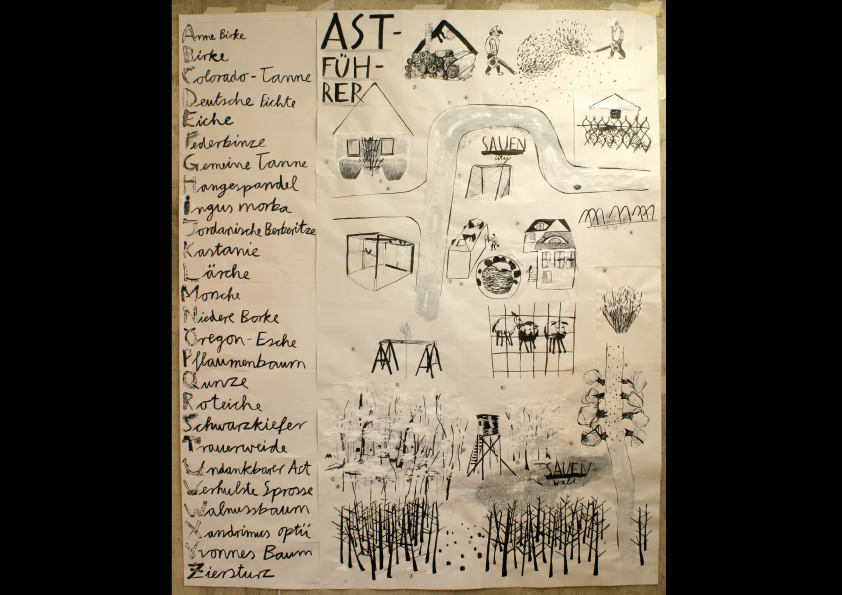 Arme Birke
Birke
Colorado-Tanne
Deutsche Fichte
Eiche
Federbinze
Gemeine Tanne
Hangespandel
ingus morba
Jordanische Berberitze
Kastanie
Lärche
Morsche
Niedere Borke
Oregon-Esche
Pflaumenbaum
Qunze
Roteiche
Schwarzkiefer
Trauerweide
Undankbarer Ast
Verhulste Sprosse
Walnussbaum
Xandrimus optii
Yvonnes Baum
Ziersturz
AST-
FÜH-
RER
SAUEN
city
SAUEN
wald